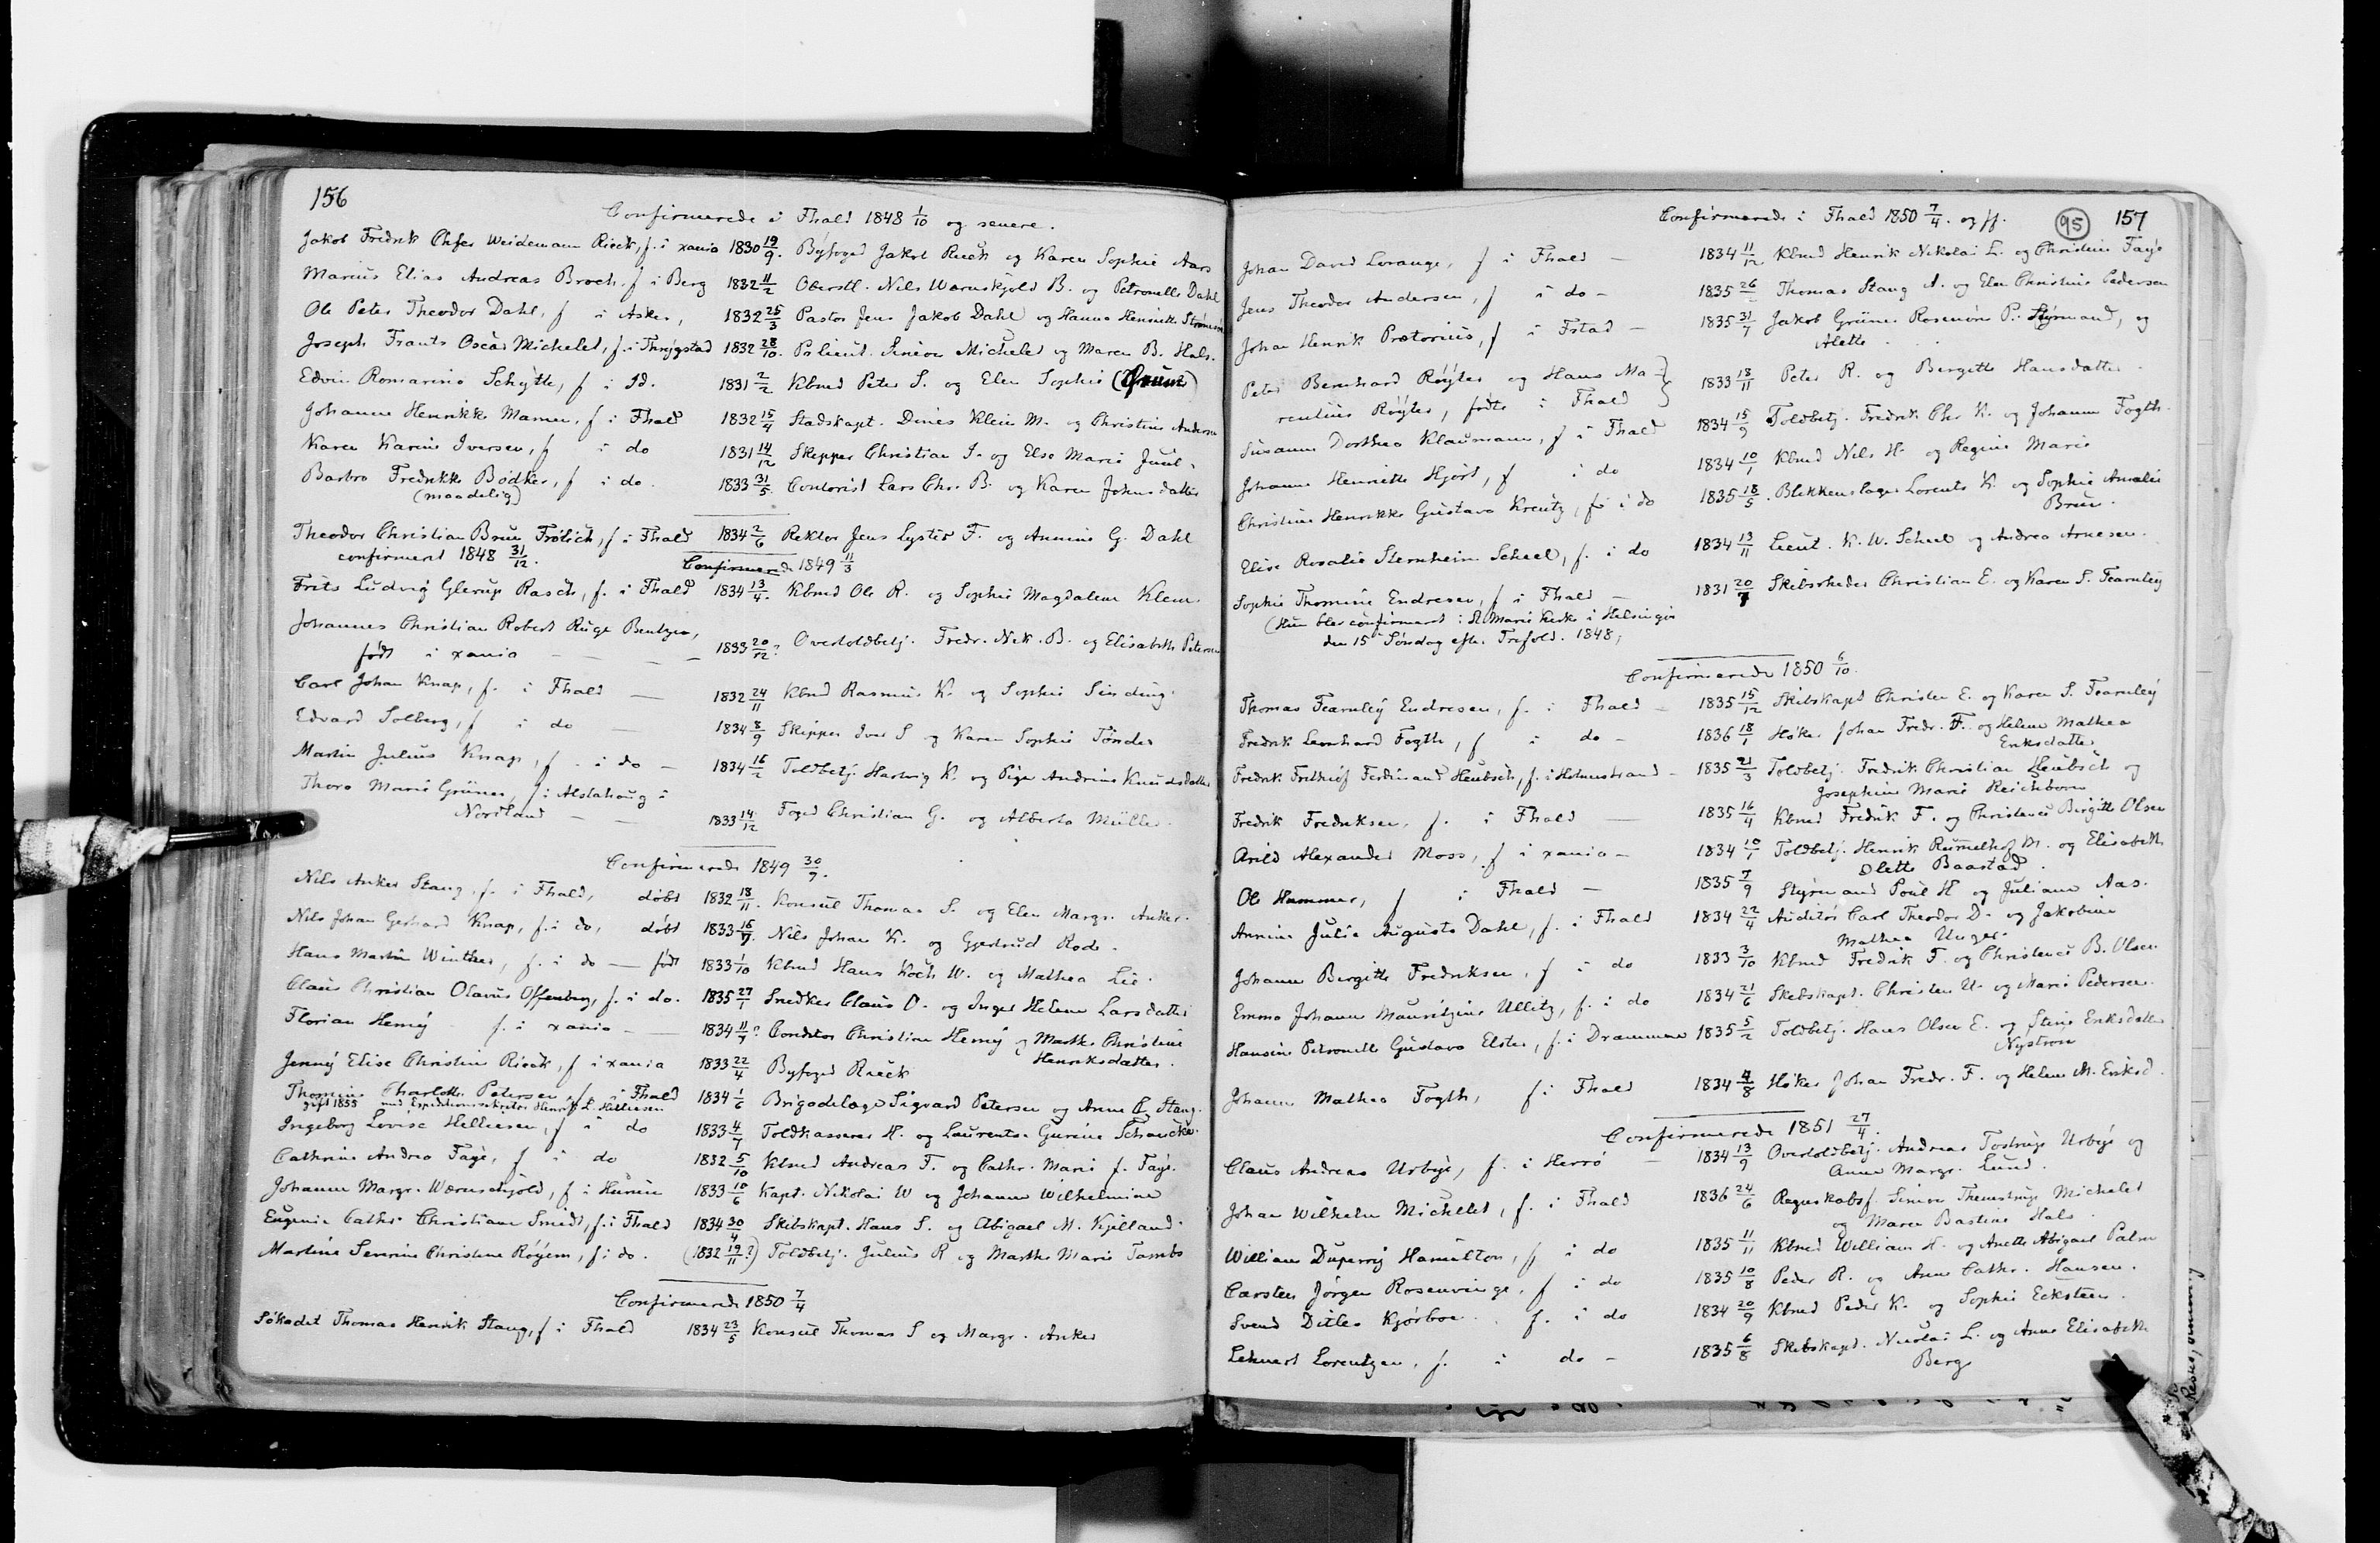 156
Confirmerede i Fhald 1848 1/10 og senere.
Jakob Fredrik Chfer Weidemann Rieck, f. i xania 1830 19/9. Byfoged Jakob Rieck og Karen Sophie Aars
Marius Elias Andreas Broch, f i Berg 1832 11/2 Oberstl. Nils Wærnskjold B. og Petronelle Dahl
Ole Peter Theodor Dahl, f i Asker, 1832 25/3 Pastor Jens Jakob Dahl og Hanna Henriette
Joseph Frants Oscar Michelet, f. i Thrygstad 1832 28/10. Prlieut. Simon Michelet og Maren B. Hals.
Edvin Romarino Schytte, f i Id. 1831 2/2 Kbmd Peter S. og Elen Sophie
Johanne Henrikke Mamen, f i Fhald 1832 15/4 Stadskapt. Dines Klein M. og Christine Andersen
Karen Karine Iversen, f i do 1831 14/12 Skipper Christian I. og Else Marie Juul.
Barbro Fredrikke Bödker, f i do. 1833 31/5. Contorist Lars Chr. B. og Karen Johnsdatter
(maadelig)
Theodor Christian Brun Frölich, f i Fhald 1834 2/6 Rektor Jens Lyster F. og Annine G. Dahl
confirmert 1848 31/12.
Confirmerede 1849 11/3
Frits Ludvig Glerup Rasch, f. i Fhald 1834 13/4. Kbmd Ole R. og Sophie Magdalene Klem.
Johannes Christian Robert Rüge Bentzen,
født i xania — — — 1833 20/12? Overtoldbetj. Fredr. Nik. B. og Elisabeth Petersen
Carl Johan Knap, f. i Fhald — 1832 24/11 Kbmd Rasmus K. og Sophie Sinding.
Edvard Solberg, f i do — 1834 8/9 Skipper Iver S og Karen Sophie Tönder
Martin Julius Knap, f. i do — 1834 16/2 Toldbetj. Hartvig K. og Pige Andrine Knudsdatter
Thora Marie Grüner, f i Alstahoug i
Nordland — — 1833 14/12 Foged Christian G. og Alberta Müller.
Confirmerede 1849 30/9.
Nils Anker Stang, f. i Fhald, döbt 1832 18/11. Konsul Thomas S. og Elen Margr. Anker.
Nils Johan Gerhard Knap, f. i do, döbt 1833 16/7. Nils Johan K. og Gjertrud Rod.
Hans Martin Winther, f. i do — født 1833 1/10 Kbmd Hans Koch W. og Mathea Lie.
Claus Christian Olavus Offenberg, f. i do. 1835 27/1 Snedker Claus O. og Inger Helene Larsdatter
Florian Hemy f. i xania — — 1834 11/7? Conditor Christian Hemy og Marthe Christine
Henriksdatter.
Jenny Elise Christine Rieck, f i xania 1833 22/4 Byfoged Rieck
Thomine Charlotte Petersen, f i Fhald 1834 1/6 Brigadelæge Sigvard Petersen og Anne C. Stang.
gift 1855 med Expeditionssekretær Henrik L. Helliesen
Ingeborg Lovise Helliesen, f i do 1833 4/7 Toldkasserer H. og Laurentze Gurine Schancke.
Cathrine Andrea Faye, f i do 1832 5/10 Kbmd Andreas F. og Cathr. Marie f. Faye.
Johanne Margr. Wærnskjold, f i Hurum 1833 10/6 Kapt. Nikolai W og Johanne Wilhelmine
Eugenie Cathr. Christiane Smidt, f. i Fhald 1834 30/4 Skibskapt. Hans S. og Abigael M. Kjelland.
Martine Severine Christine Röyem, f i do. (1832 19/11?) Toldbetj. Julius R og Marthe Marie Tambs
Confirmerede 1850 7/4
Sökadet Thomas Henrik Stang, f i Fhald 1834 23/5 Konsul Thomas S og Margr. Anker
Confirmerede i Fhald 1850 7/4. og ff. 95 157
Johan David Lorange, f i Fhald — 1834 11/12 Kbmd Henrik Nikolai L. og Christine Faye
Jens Theodor Andersen, f i do — 1835 26/ Thomas Stang A. og Elen Christine Pedersen
Johan Henrik Prætorius, f i Fstad — 1835 31/7 Jakob Grüner Rosenörn P. Styrmand, og
Alette
Peter Bernhard Röyter og Hans Ma-
rentius Röyter, födte i Fhald 1833 18/11 Peter R. og Bergitte Hansdatter
Susanne Dorthea Klaumann, f i Fhald 1834 15/9 Toldbetj. Fredrik Chr K. og Johanne Fogth.
Johanne Henriette Hjort, f i do 1834 10/1 Kbmd Nils H. og Regine Marie
Christine Henrikke Gustava Kreutz, f i do 1835 18/5. Blikkenslager Lorents K. og Sophie Amalie
Brun.
Elise Rosalie Sternheim Scheel, f. i do 1834 13/11 Lieut. K. W. Scheel og Andrea Arnesen.
Sophie Thomine Endresen, f i Fhald — 1831 20/7 Skibsrheder Christian E. og Karen S. Fearnley
(Hun blev confirmert i St Marie Kirke i Helsingör
den 15 Söndag efter Trefold. 1848,
Confirmerede 1850 6/10.
Thomas Fearnley Endresen, f. i Fhald — 1835 15/12 Skibskapt Christen E. og Karen S. Fearnley
Fredrik Leonhard Fogth, f i do — 1836 18/1 Höker Johan Fredr. F. og Helene Mathea
Eriksdatter
Fredrik Frithiof Ferdinand Heubsch, f. i Holmestrand — 1835 21/3 Toldbetj. Fredrik Christian Heubsch og
Josephine Marie Reichborn
Fredrik Fredriksen, f. i Fhald — 1835 16/4 Kbmd Fredrik F. og Christence Birgitte Olsen
Arild Alexander Moss, f i xania — 1834 10/1 Toldbetj. Henrik Rummelhof M. og Elisabeth
Olette Baastad.
Ole Hammer, f i Fhald — 1835 7/9 Styrmand Poul H og Juliane Aas.
Annine Julie Augusta Dahl, f. i Fhald 1834 22/4 Auditör Carl Theodor D. og Jakobine
Mathea Unger.
Johanne Bergitte Fredriksen, f i do 1833 3/10 Kbmd Fredrik F. og Christence B. Olsen
Emma Johanne Mauritzine Ullitz, f. i do 1834 21/6 Skibskapt. Christen U. og Marie Pedersen.
Hansine Petronelle Gustava Elster, f. i Drammen 1835 5/2 Toldbetj. Hans Olsen E. og Stine Eriksdatter
Nystrom
Johanne Mathea Fogth, f i Fhald 1834 4/8 Höker Johan Fredr. F. og Helene M. Eriksd.
Confirmerede 1851 27/4.
Claus Andreas Urbye, f. i Herrö — 1834 13/9 Overtoldbetj. Andreas Tostrup Urbye og
Anne Margr. Lund.
Johan Wilhelm Michelet, f. i Fhald 1836 24/6 Regnskabsf. Simon Themstrup Michelet
og Maren Bastine Hals.
William Duperry Hamilton, f i do 1835 11/11 Kbmd William H. og Anette Abigael Palm
Carsten Jörgen Rosenvinge, f i do 1835 10/8 Peder R. og Anne Cathr. Hansen.
Svend Ditlev Kjörboe. f. i do 1834 20/9 Kbmd Peder K. og Sophie Ecksteen.
Lehnert Lorentzen, f. i do — 1835 6/8 Skibskapt. Nicolai L. og Anne Elisabeth
Berg